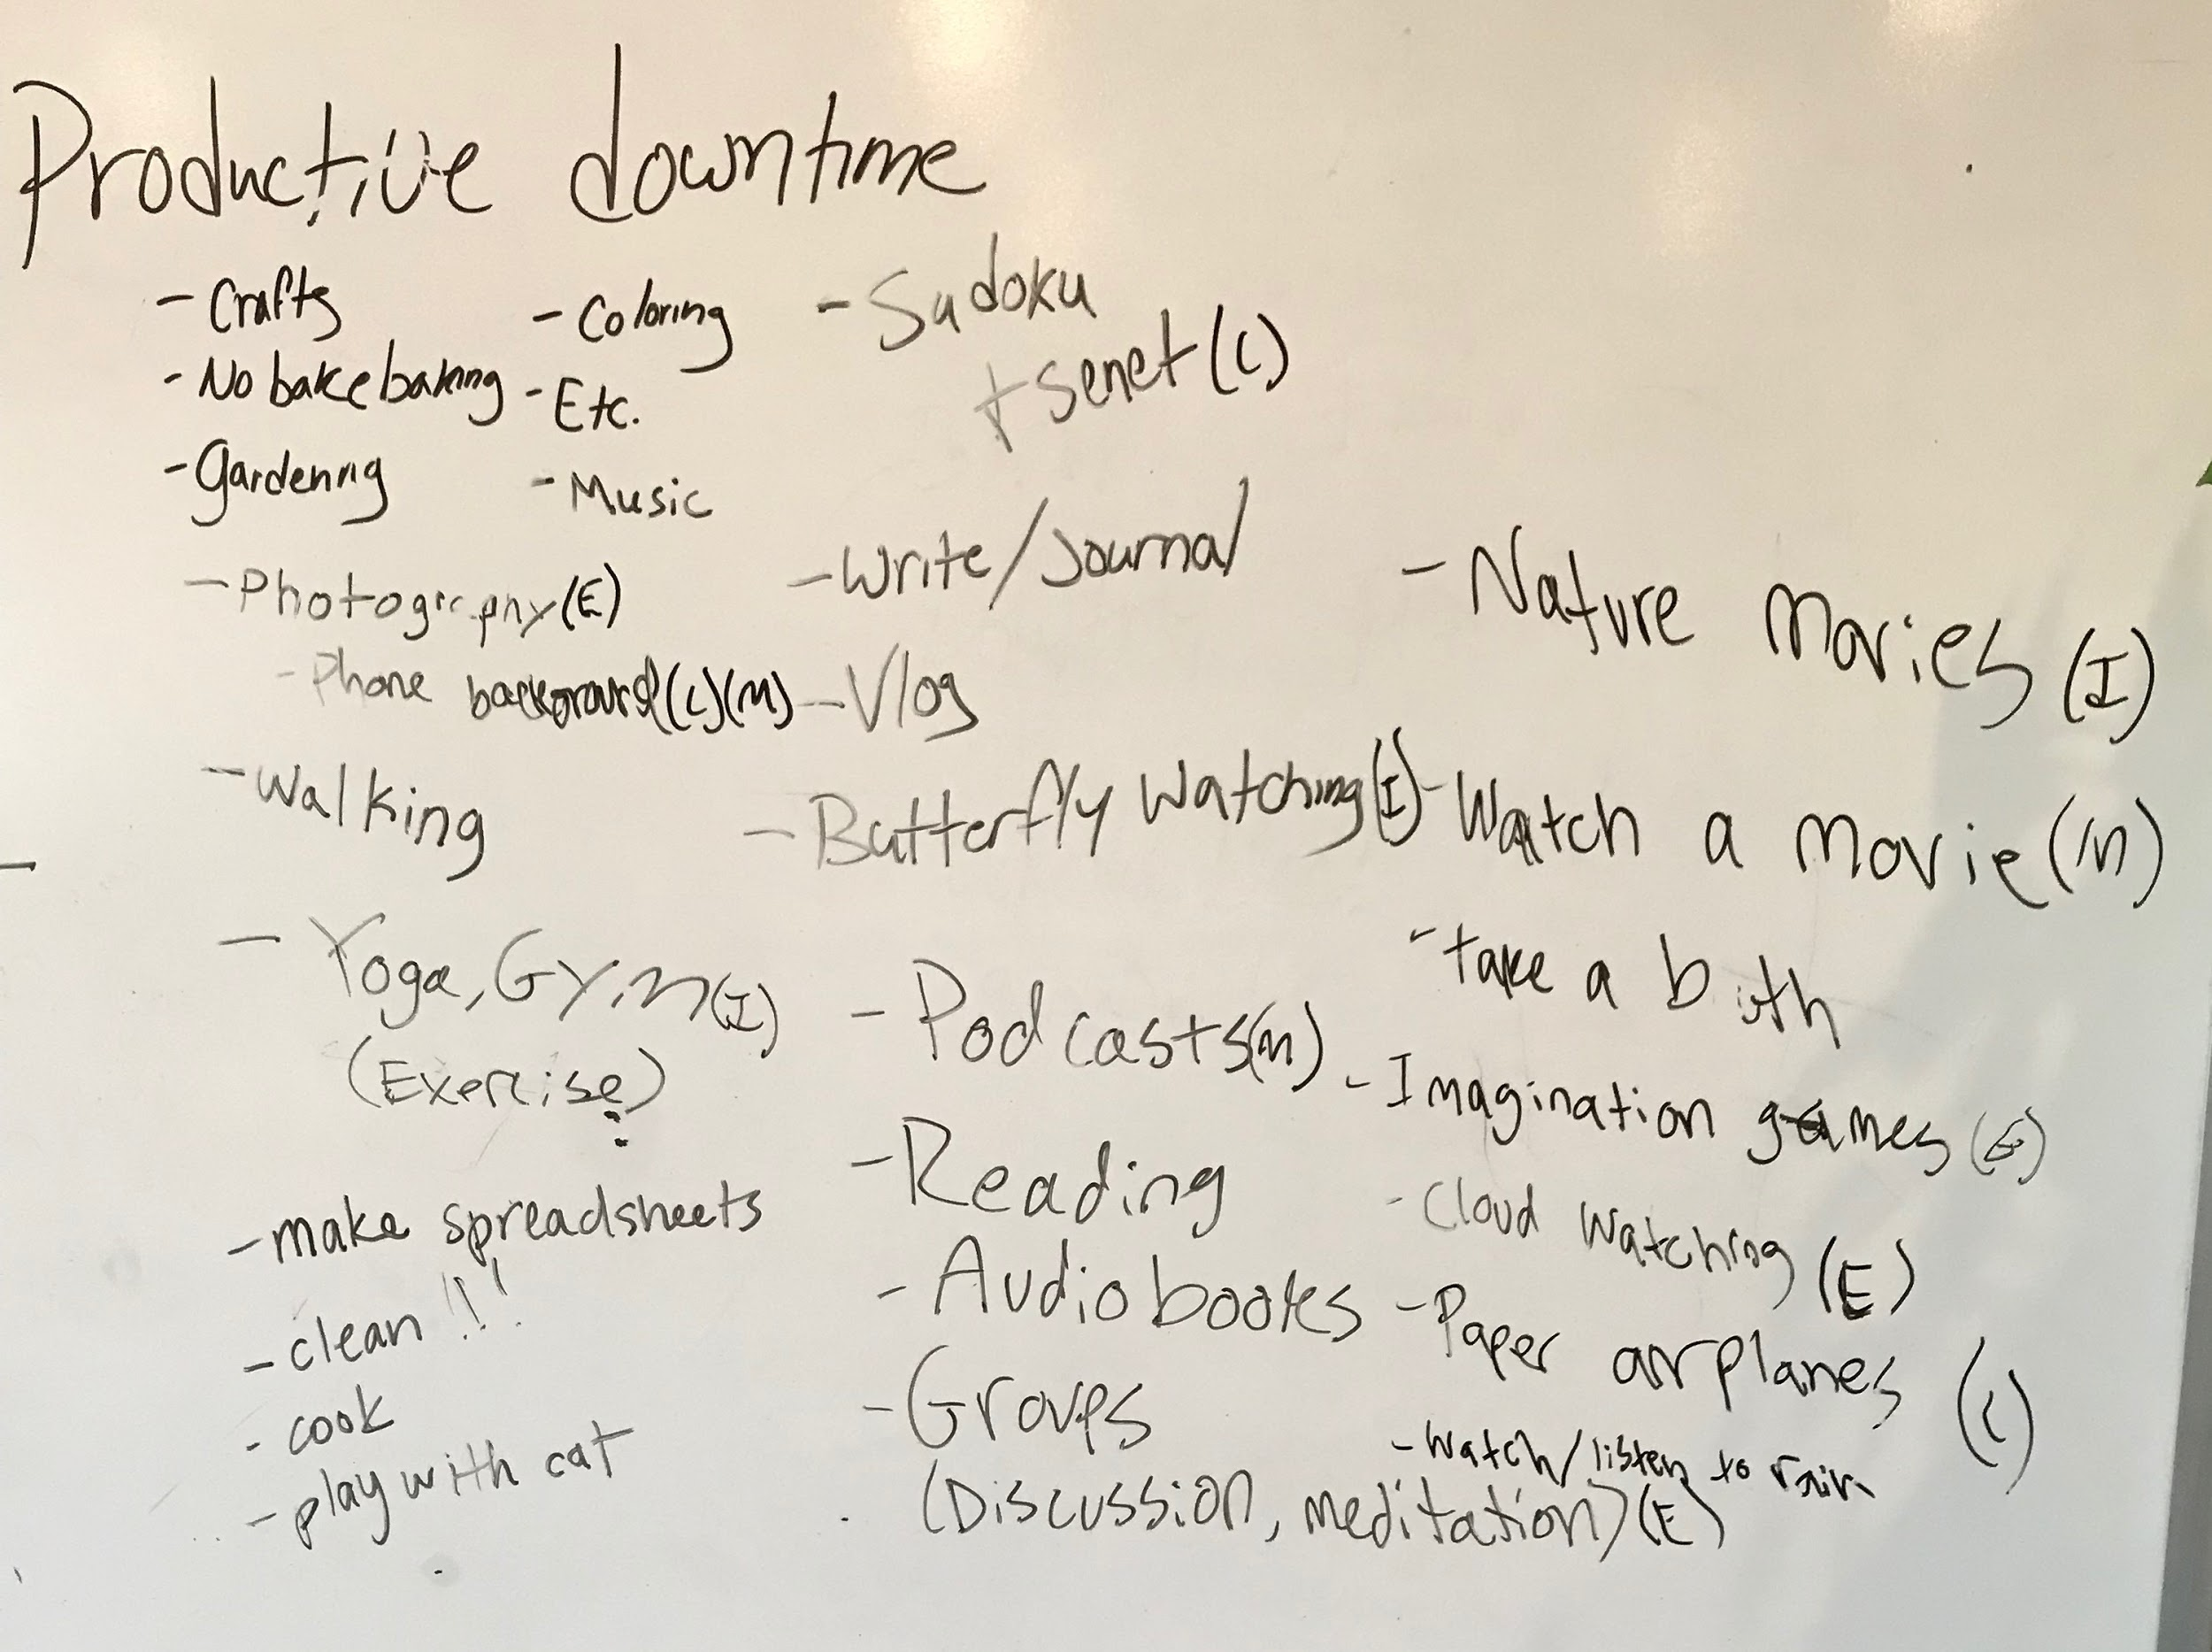 Productive downtime
- Crafts
- No bake baking
- Gardening
- Coloring
- Etc.
- Music
- Sudoku
+ Senet (C)
- Photography (E)
- Phone background (C) (M)
- Walking
- Yoga, Gym (I)
(Exercise)
- make spreadsheets
- clean !!!
- cook
- play with cat
- Write/Journal
- Vlog
- Butterfly Watching (I)
- Podcasts (M)
- Reading
- Audiobooks
- Groups
(Discussion, meditation) (E)
- Nature Movies (I)
- Watch a Movie (M)
- take a bath
- Imagination games
- Cloud Watching (E)
- Paper airplanes (C)
- Watch/listen to rain